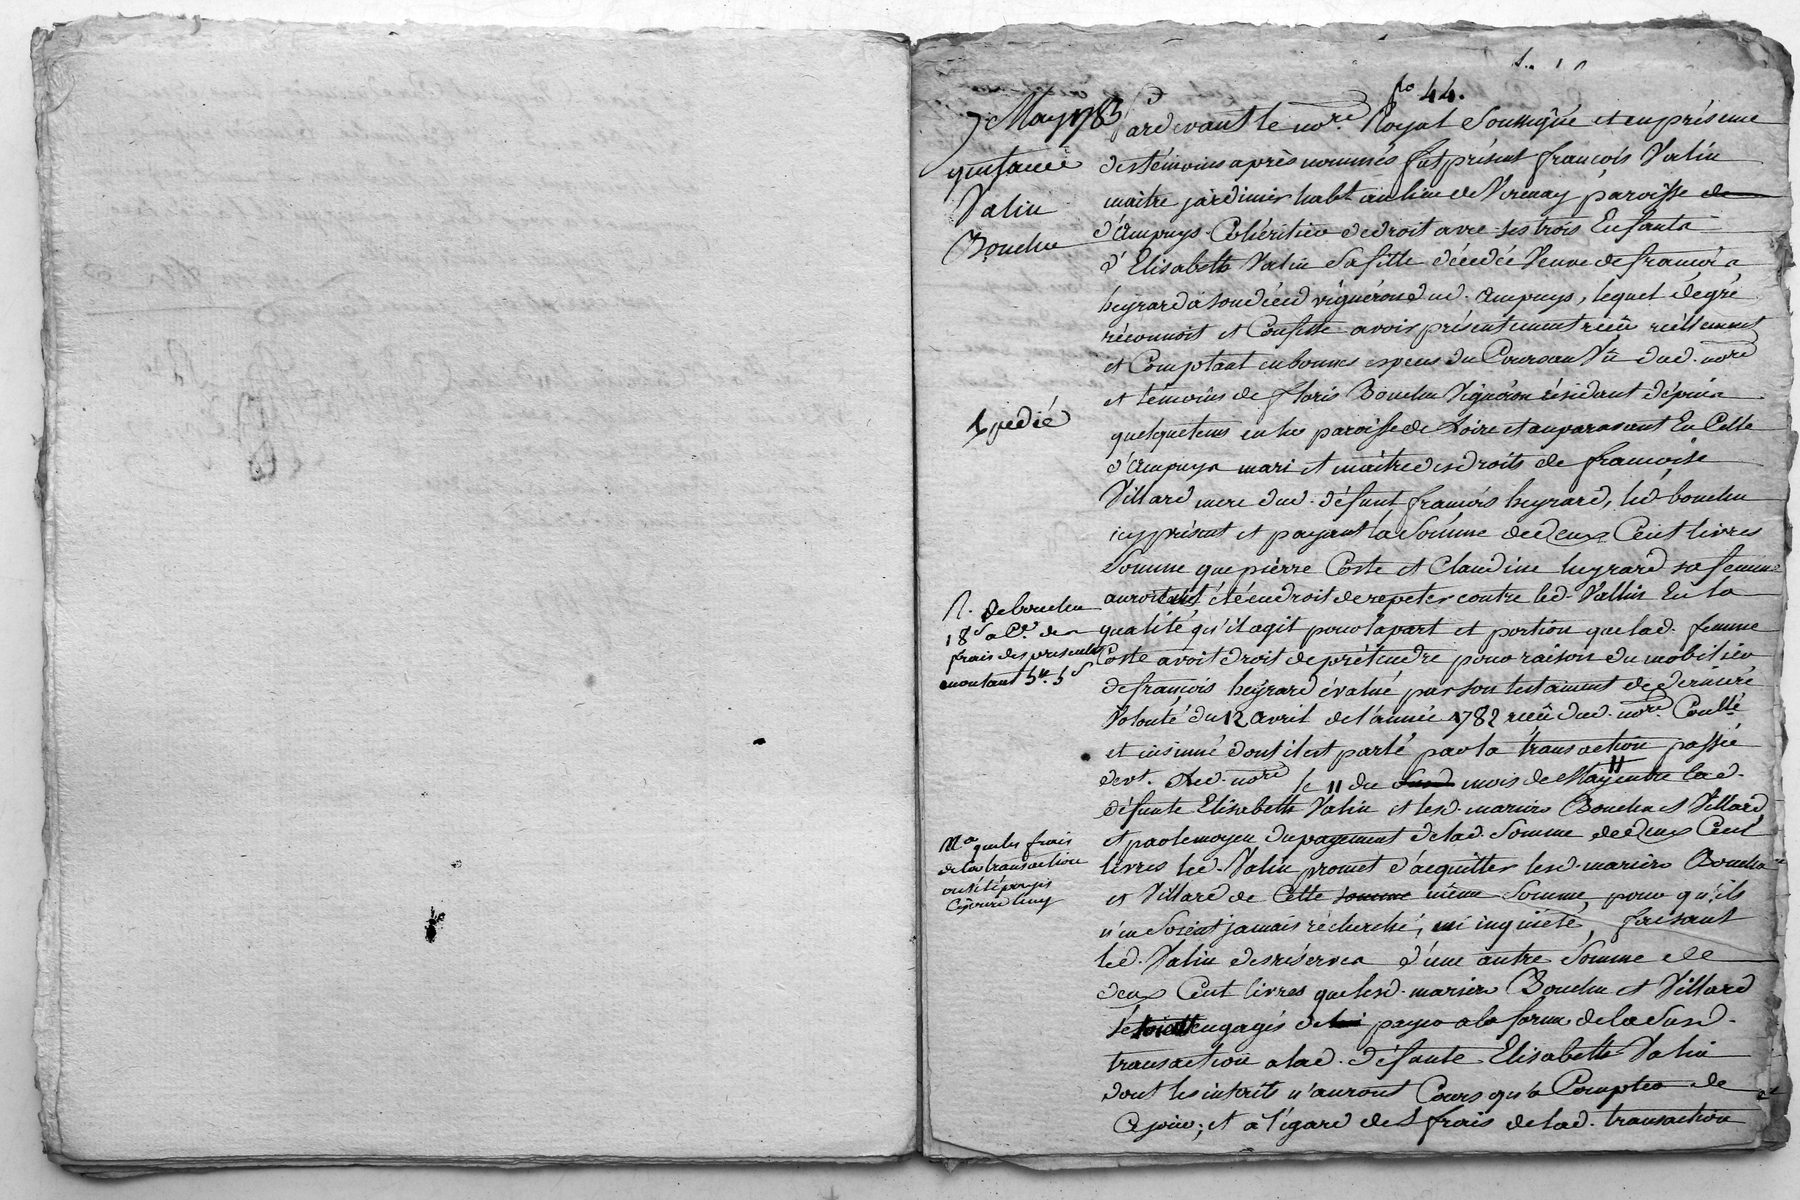 fo 44.
7 May 1783
quittance
Valin
Bouchu
Expedié
R. de bouchu
18s a Ce. des
frais des presentes
montant 5tt. 5s
Na que les frais
de la transaction
ont été payés
Pardevant le nore. Royal Soussigné et en présence
des témoins après nommés fut présent françois Valin
maitre jardinier habt. au lieu de Verenay paroisse de
d'Ampuys Cohéritier de droit avec ses trois Enfants
d'Elisabeth Valin Sa fille décédée Veuve de françois
heyrard a son décéd vigneron dud. Ampuys, lequel de gré
réconnoit et Confesse avoir présentement reçû réellement
et Comptant en bonnes especes du Cours au Vû dud. nore
et temoins de floris Bouchu Vigneron résidant dépuis
quelque tems en la paroisse de Loire et auparavant En Celle
d'Ampuys mari et maitre des droits de françoise
Villard mere dud. défunt françois heyrard, led. bouchu
icy présent et payant la Somme de deux Cent livres
Somme que pierre Coste et Claudine heyrard sa femme
auroient été en droit de repeter contre led. Vallin En la
qualité qu'il agit pour la part et portion que lad. femme
Coste avoit droit de prétendre pour raison du mobilier
de françois heyrard évalué par son testament de derniere
Volonté du 12 avril de l'année 1782 reçû dud. nore. Contllé
et insinué dont il est parlé par la transaction passée
devt. led. nore le 11 du mois de May entre lad.
défunte Elisabeth Valin et lesd. mariés Bouchu et Villard
et par le moyen du payement de lad. Somme de deux Cent
livres led. Valin promet d'acquitter lesd. mariés Bouchu
et Villard de Cette somme même Somme, pour qu'ils
n'en Soient jamais récherché, ni inquiété, faisant
led. Valin des réserves d'une autre Somme de
deux Cent livres que lesd. mariés Bouchu et Villard
engagés de payer a la forme de la Susd.
transaction a lad. défunte Elisabeth Valin
dont les intérêts n'auront Cours qu'a Compter de
Ce jour; et a l'égard des frais de lad. transaction